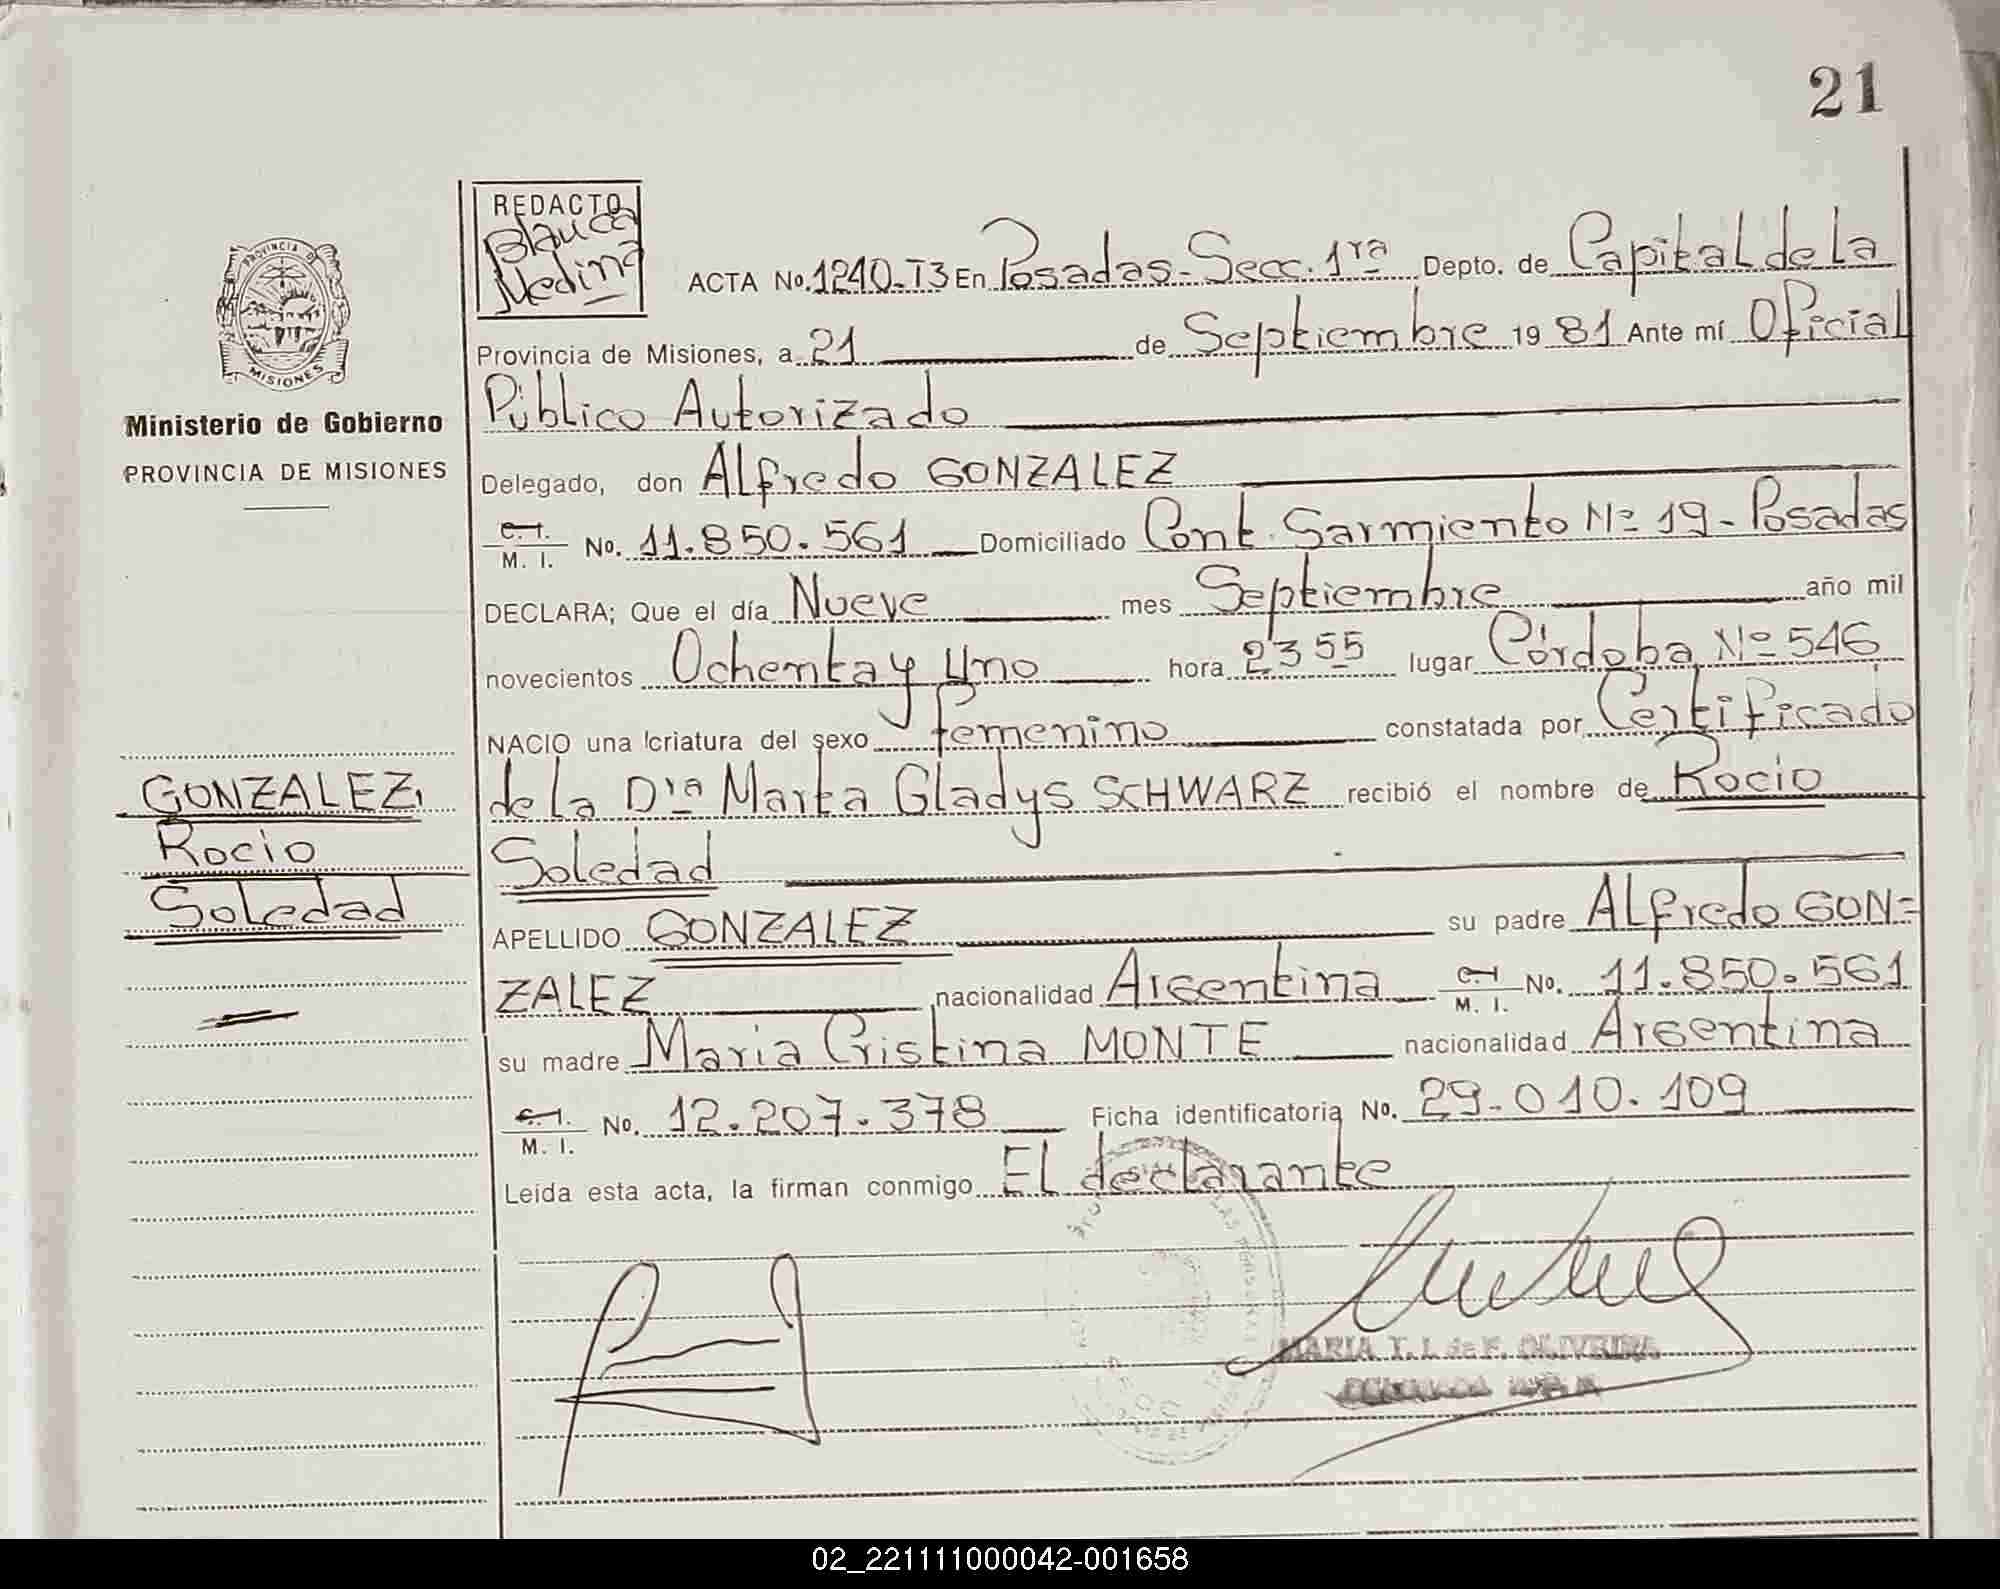 21
REDACTO
Blanca
Medina
PROVINCIA DE
MISIONES
Ministerio de Gobierno
PROVINCIA DE MISIONES
ACTA No. 1240-T3 En Posadas-Secc. 1ra Depto. de Capital de la
Provincia de Misiones, a 21 de Septiembre 1981 Ante mí Oficial
Público Autorizado
Delegado, don Alfredo GONZALEZ
C. I.
M. I. No. 11.850.561 Domiciliado Cont. Sarmiento Nº 19 - Posadas
DECLARA; Que el día Nueve mes Septiembre año mil
novecientos Ochenta y Uno hora 23 55 lugar Córdoba Nº 546
NACIO una criatura del sexo femenino constatada por Certificado
de la Dra Marta Gladys SCHWARZ recibió el nombre de Rocio
Soledad
APELLIDO GONZALEZ su padre Alfredo GON=
ZALEZ nacionalidad Argentina C. I.
M. I. No. 11.850.561
su madre Maria Cristina MONTE nacionalidad Argentina
C. I.
M. I. No. 12.207.378 Ficha identificatoria No. 29.010.109
Leída esta acta, la firman conmigo El declarante
GONZALEZ,
Rocio
Soledad
MARIA T. I. de F. OLIVEIRA
02_221111000042-001658